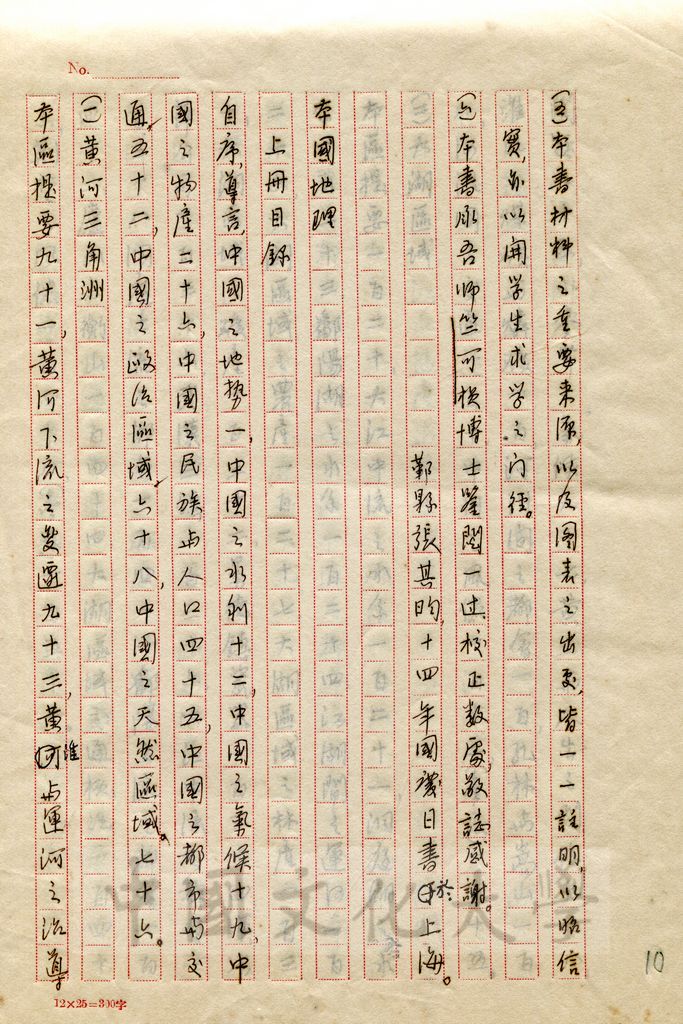 No.
(五)本書材料之重要來源,以及圖表之出處,皆一一註明,以昭信
實,亦以開學生求學之門徑。
(六)本書承吾師竺可楨博士鑒閱一過,校正數處,敬誌感謝。
鄞縣張其昀,十四年國慶日書於上海。
本國地理
上冊目錄
自序,導言,中國之地勢一,中國之水利十二,中國之氣候十九,中
國之物產二十六,中國之民族與人口四十五,中國之都市與交
通五十二,中國之政治區域六十八,中國之天然區域七十六。
(一)黃河三角洲
本區提要九十一,黃河下流之變遷九十三,黃淮與運河之治導
12×25=300字
10
中國文化大學